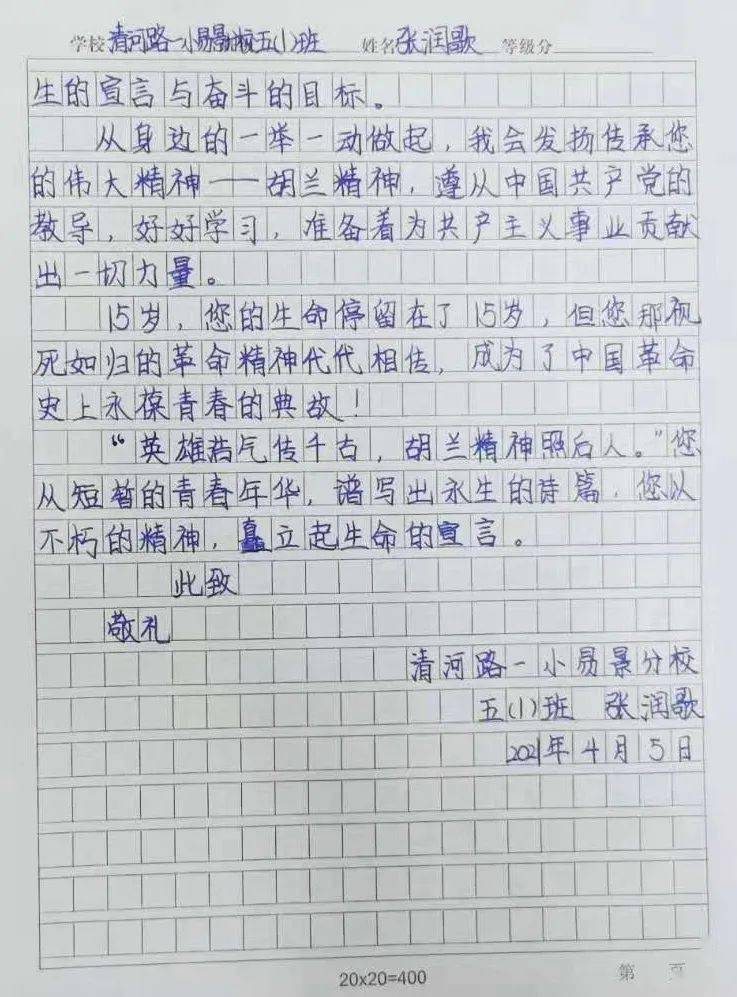 学校清河路一小易景分校五(1)班 姓名张润歌 等级分
生的宣言与奋斗的目标。
从身边的一举一动做起，我会发扬传承您
的伟大精神——胡兰精神，遵从中国共产党的
教导，好好学习，准备着为共产主义事业贡献
出一切力量。
15岁，您的生命停留在了15岁，但您那视
死如归的革命精神代代相传，成为了中国革命
史上永葆青春的典故！
“英雄浩气传千古，胡兰精神照后人。”您
从短暂的青春年华，谱写出永生的诗篇，您以
不朽的精神，矗立起生命的宣言。
此致
敬礼
清河路一小易景分校
五(1)班 张润歌
2021年4月5日
20x20=400 第 页